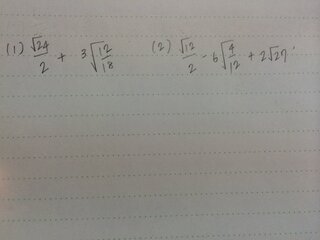 (1) √24/2 + 3√12/18 (2) √12/2 - 6√4/12 + 2√27